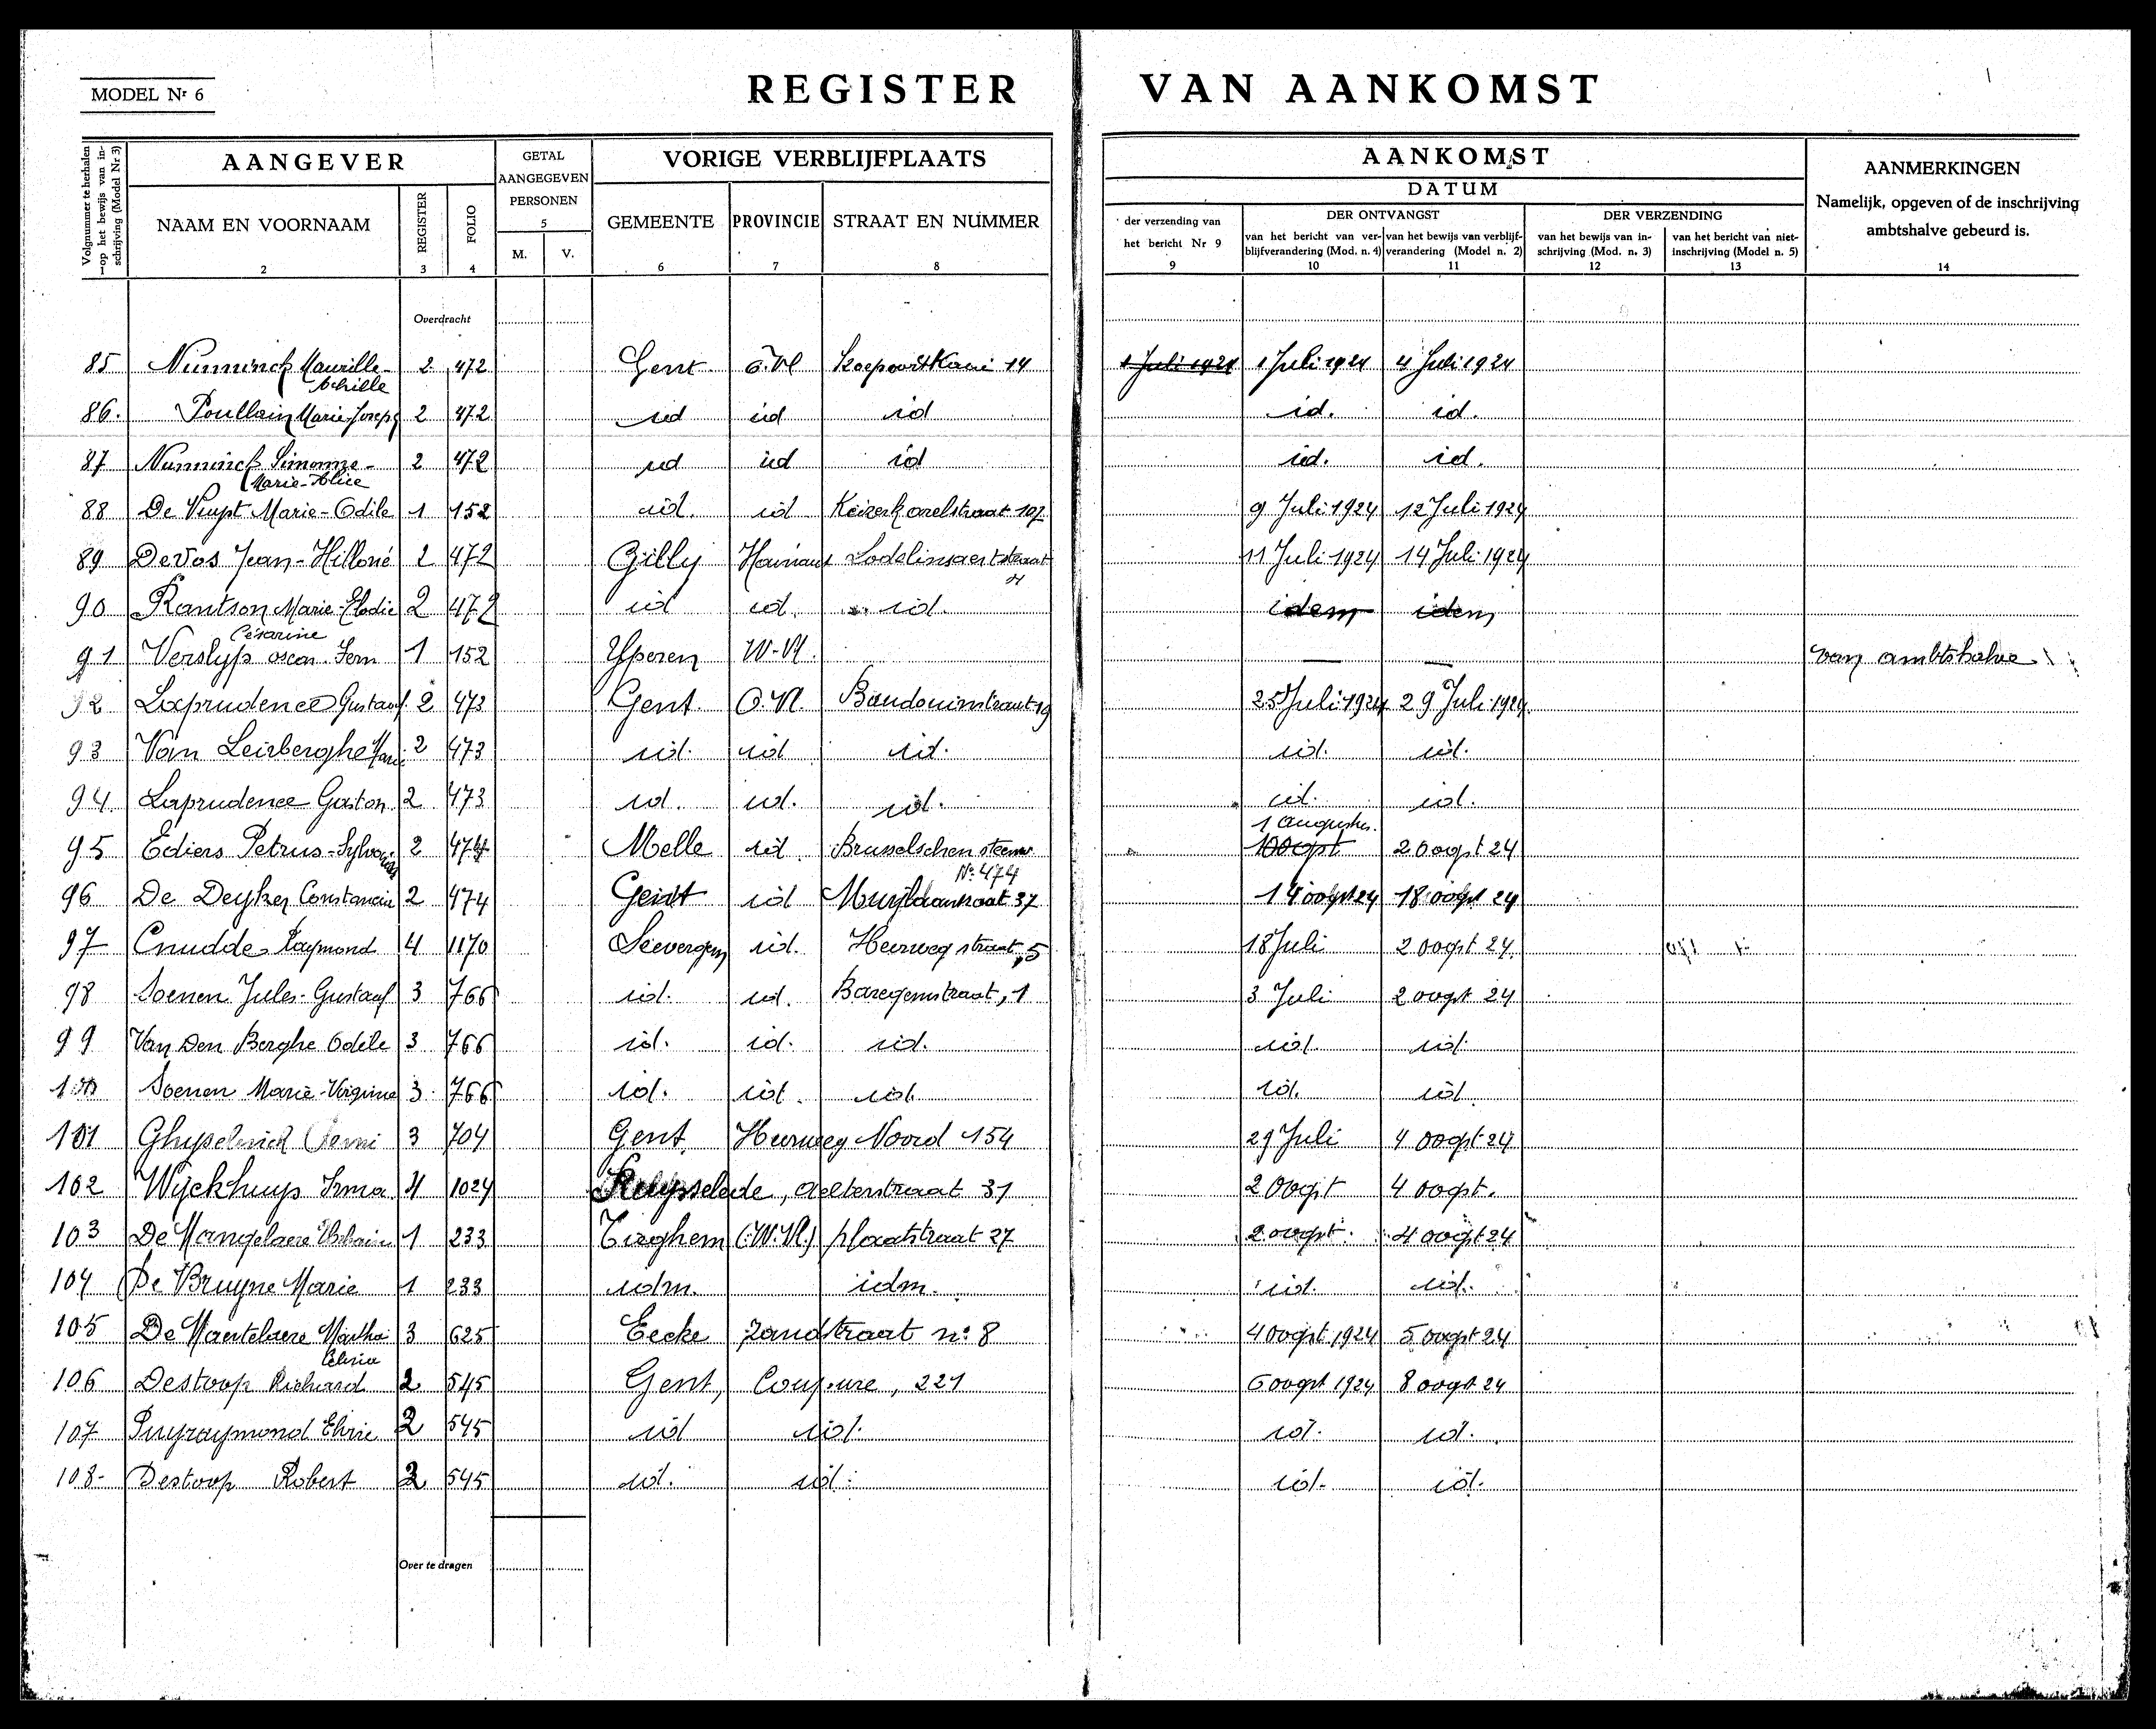 MODEL Nr 6
REGISTER VAN AANKOMST
Volgnummer te herhalen op het bewijs van inschrijving (Model Nr 3)
AANGEVER
GETAL AANGEGEVEN PERSONEN
VORIGE VERBLIJFPLAATS
AANKOMST
AANMERKINGEN
Namelijk, opgeven of de inschrijving
ambtshalve gebeurd is.
DATUM
NAAM EN VOORNAAM REGISTER FOLIO 5 M. V. GEMEENTE PROVINCIE STRAAT EN NUMMER
der verzending van het bericht Nr 9
DER ONTVANGST
DER VERZENDING
van het bericht van ver- blijfverandering (Mod. n. 4)
van het bewijs van verblijf- verandering (Model n. 2)
van het bewijs van in- schrijving (Mod. n. 3)
van het bericht van niet- inschrijving (Model n. 5)
1 2 3 4 6 7 8 9 10 11 12 13 14
Overdracht
85 Nunninck Maurille- 2 472 Gent O.Vl Koepoortkaai 14 1 Juli 1924 1 Juli 1924 4 Juli 1924
Achille
86. Poullain Marie-Joseph 2 472 id id id id. id.
87 Nunninck Simonne- 2 472 id id id id. id.
Marie-Alice
88 De Vuyst Marie-Odile 1 152 id. id Keizerkarelstraat 107 9 Juli 1924 12 Juli 1924
89 Devos Jean- 2 472 Gilly Hainaut Lodelinsaertstraat 11 Juli 1924 14 Juli 1924
90 Marie-Elodie 2 472 id id. id. idem idem
Césarine
91 Verslyp oscar 1 152 Yperen W-Vl. — — van ambtshalve
92 Laprudence Gustaaf 2 473 Gent O.Vl. Baudouinstraat 19 25 Juli 1924 29 Juli 1924
93 Van Leirberghe 2 473 id. id id. id. id.
94 Laprudence Gaston 2 473 id. id. id. id. id.
1 augustus.
95 Ediers Petrus- 2 474 Melle id. Brusselschen steenw 2 oogst 24
No 474
96 De Deyker Constancia 2 474 Gendt id 37 14 oogst 24 18 oogst 24
97 Cnudde Raymond 4 1170 Seevergem id. Heerweg straat, 5 18 Juli 2 oogst 24
98 Soenen Jules-Gustaaf 3 766 id. id. Baregemstraat, 1 3 Juli 2 oogst 24
99 Van Den Berghe Odile 3 766 id. id. id. id. id.
100 Soenen Marie-Virginie 3 766 id. id. id. id. id.
101 3 704 Gent Heerweg Noord 154 29 Juli 4 oogst 24
102 Wyckhuys Irma 4 1024 Ruysselede, Aelterstraat 31 2 Oogst 4 oogst.
103 1 233 (W.Vl.) plaatstraat 27 2 oogst. 4 oogst 24
104 De Bruyne Marie 1 233 idm. idm. id. id.
105 Martha 3 625 Eecke Zandstraat no 8 4 Oogst 1924 5 oogst 24
106 Destoop Richard 2 545 Gent, Coupure, 221 6 oogst 1924 8 oogst 24
107 2 545 id id. id. id.
108- Destoop Robert 2 545 id. id. id. id.
Over te dragen